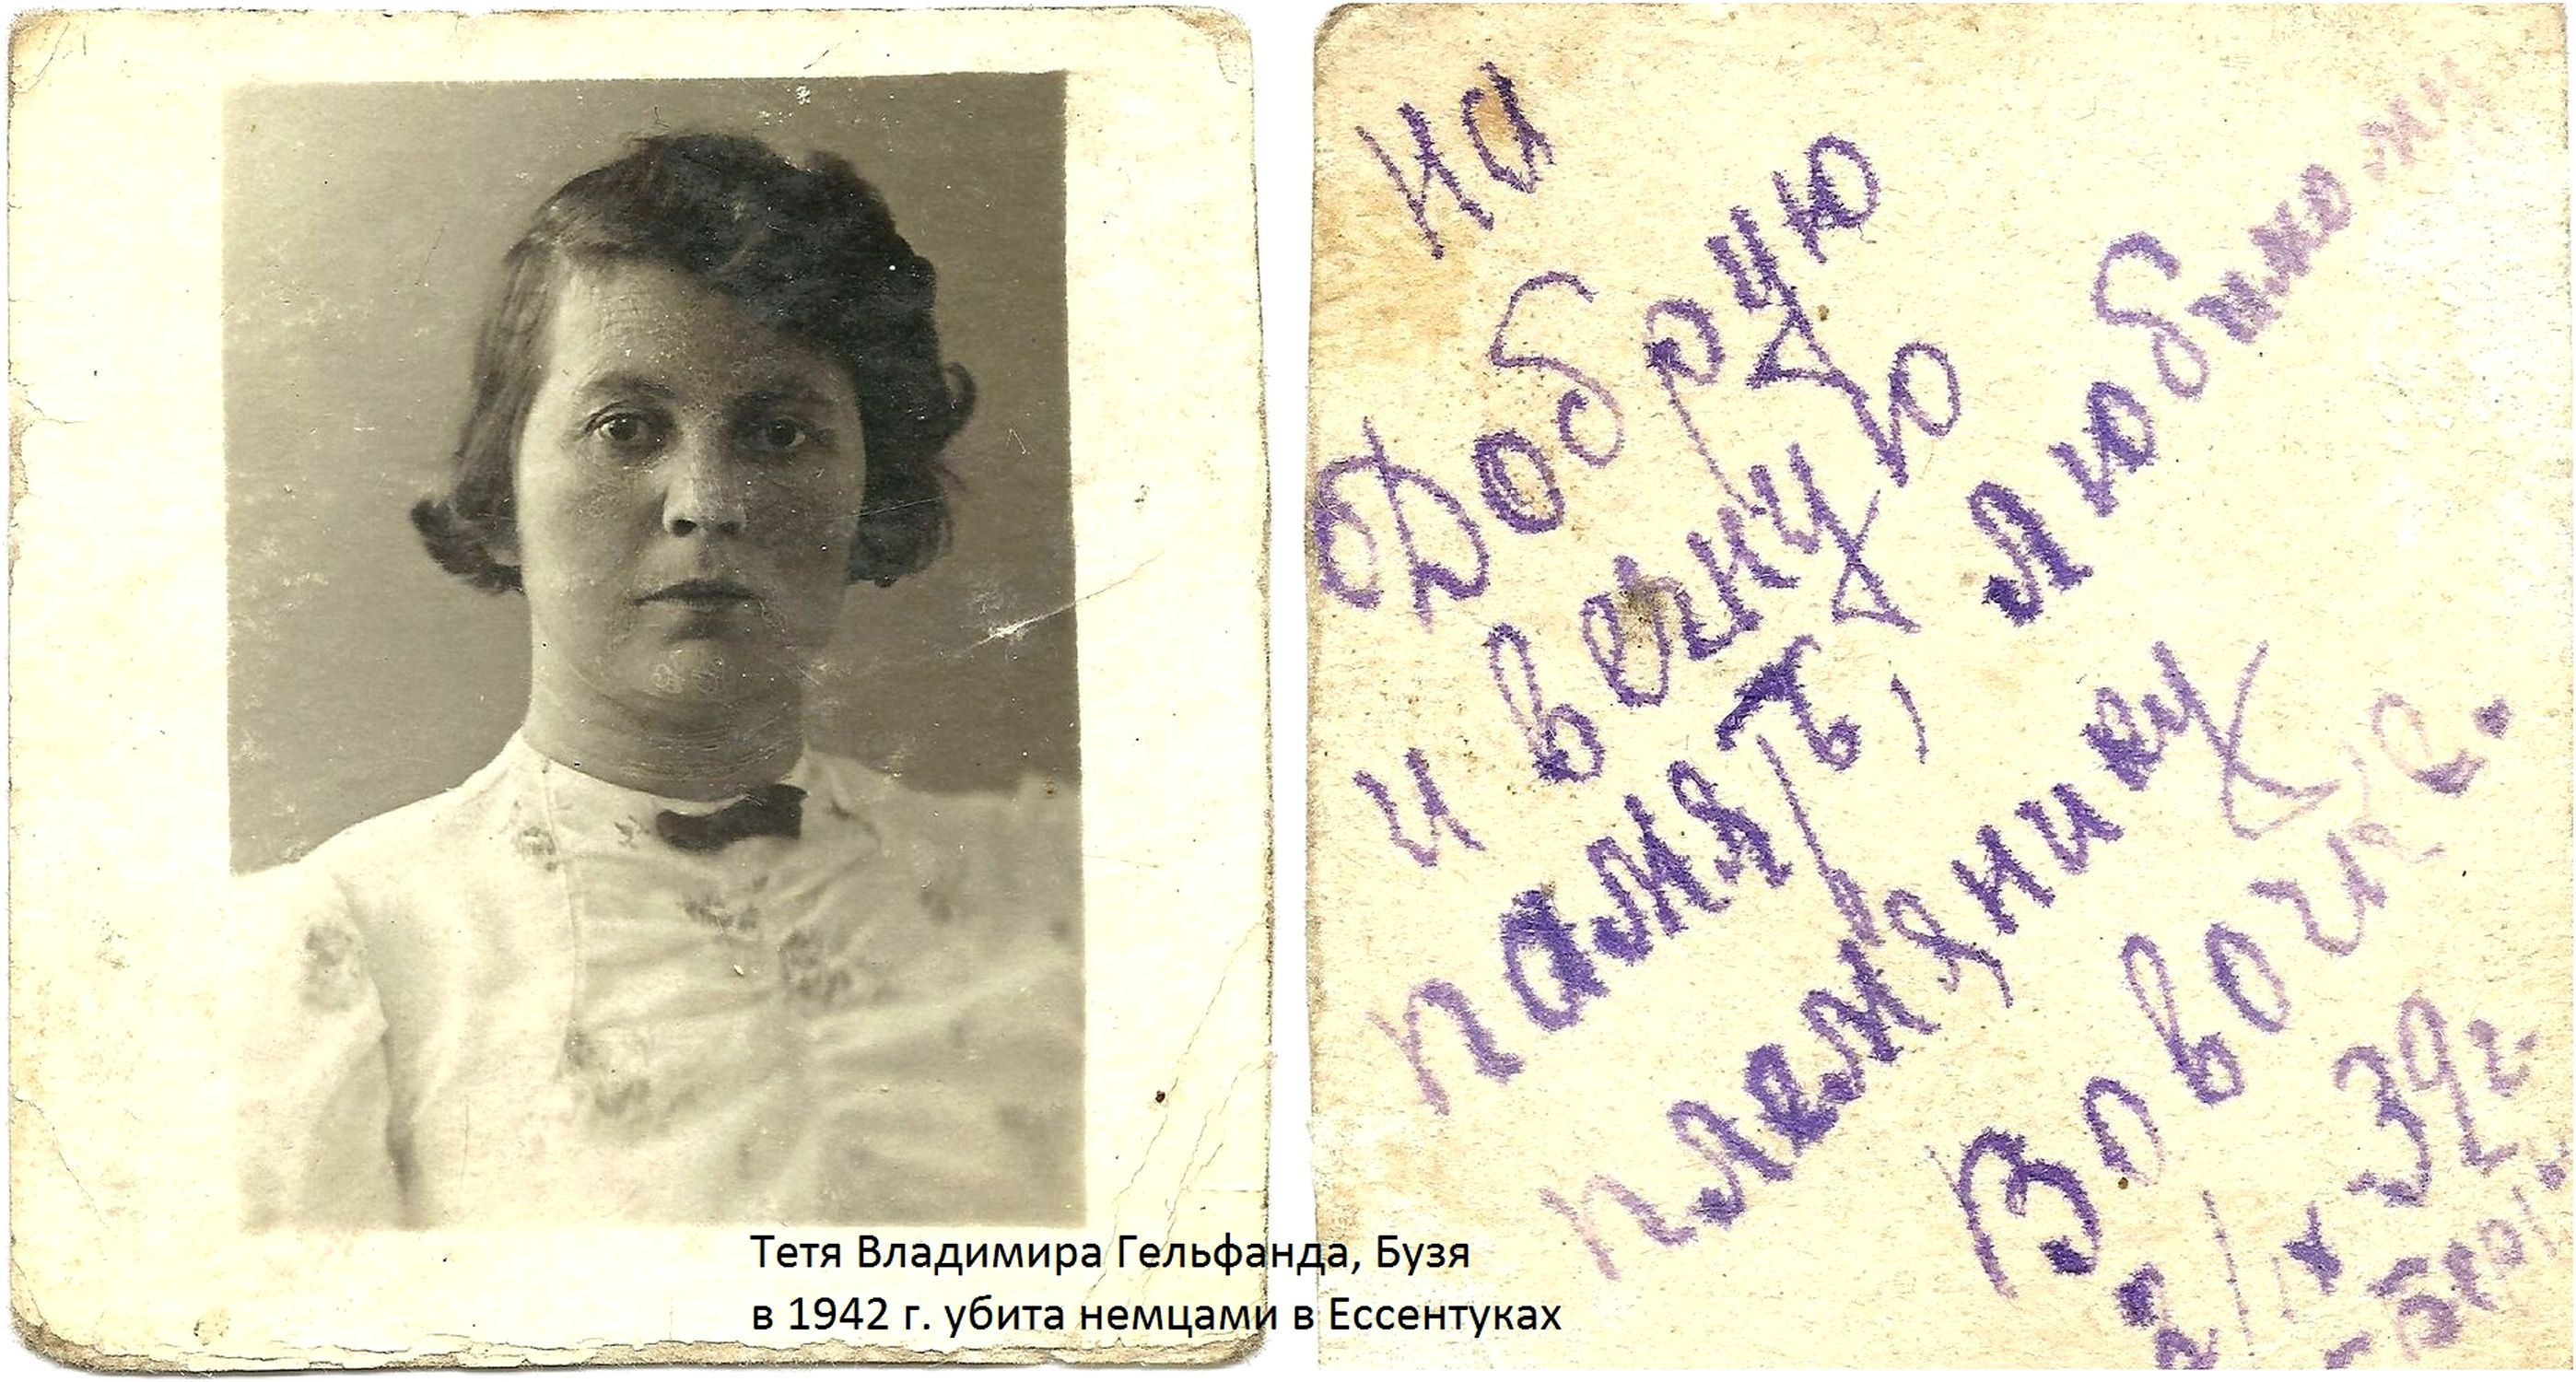 на
Добрую
и вечную
память, любимому
племянику
Вовочке.
39г.
Тетя Владимира Гельфанда, Бузя
в 1942 г. убита немцами в Ессентуках